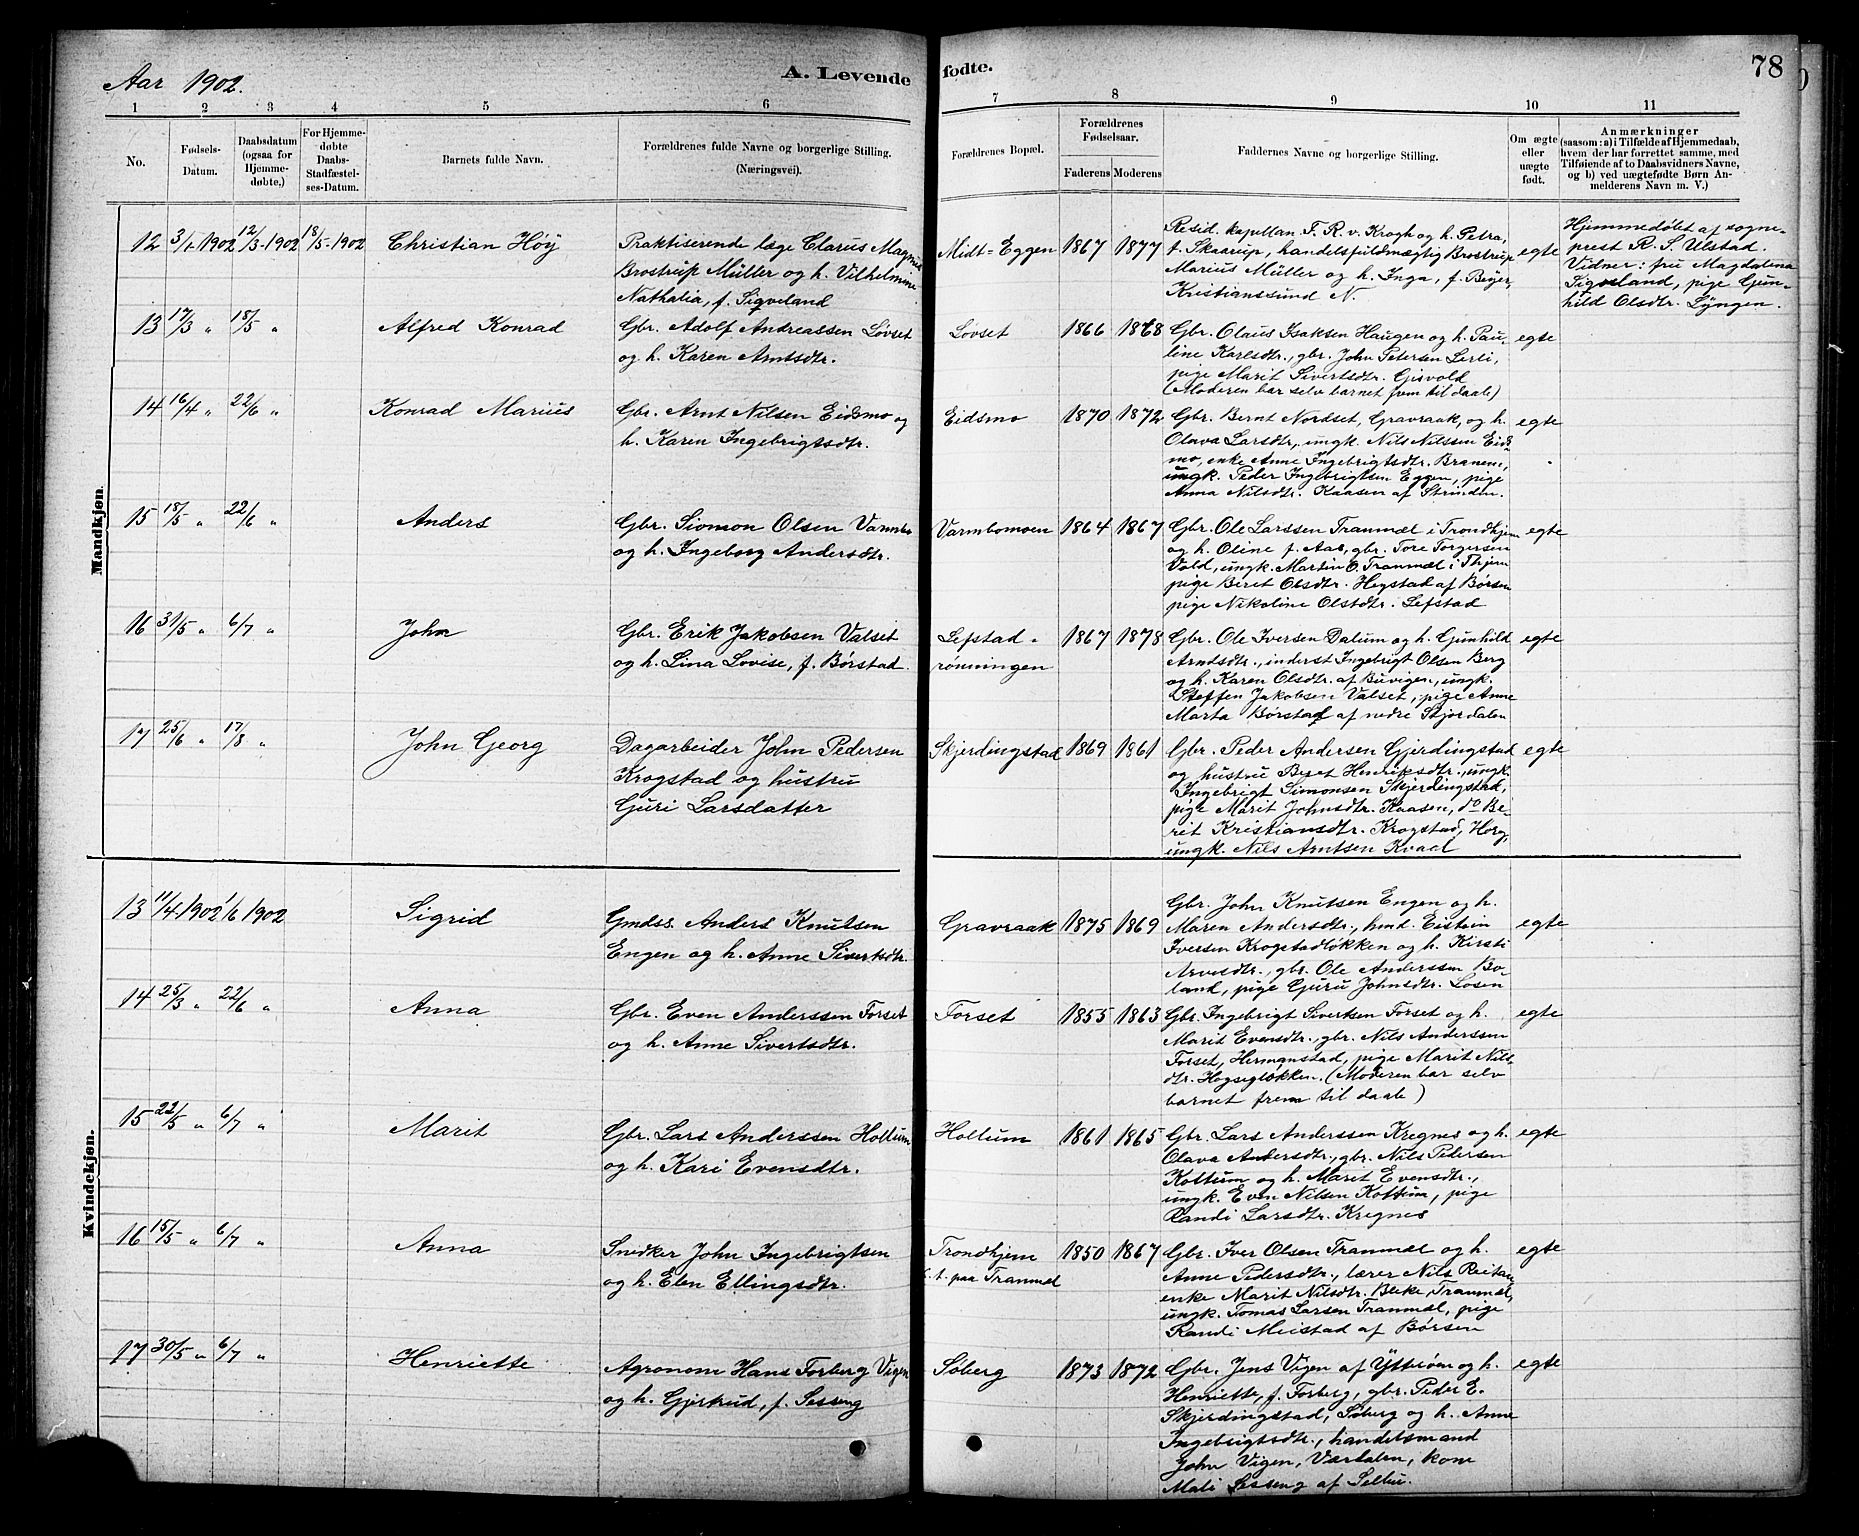 Aar 1902.
A. Levende fødte.
78
1 2 3 4 5 6 7 8 9 10 11
No.
Fødsels-
Datum.
Daabsdatum
(ogsaa for
Hjemme-
døbte.)
For Hjemme-
døbte
Daabs-
Stadfæstel-
ses-Datum.
Barnets fulde Navn.
Forældrenes fulde Navne og borgerlige Stilling.
(Næringsvei).
Forældrenes Bopæl.
Forældrenes
Fødselsaar.
Faderens Moderens
Faddernes Navne og borgerlige Stilling.
Om ægte
eller
uægte
født.
Anmærkninger
(saasom: a) i Tilfælde af Hjemmedaab,
hvem der har forrettet samme, med
Tilføiende af to Daabsvidners Navne,
og b) ved uægtefødte Børn An-
melderens Navn m. V.)
Mandkjøn.
12 3/1 1902 12/3 1902 18/5 1902 Christian Höy
Praktiserende læge Clarus Magnus
Brostrup Müller og h. Vilhelmine
Nathalia, f. Sigveland
Midt-Eggen 1867 1877
Resid. kapellan F. R. v. Krogh og h. Petra,
f. Skaarup, handelsfuldmægtig Brostrup
Marius Müller og h. Inga, f. Beyer,
Kristianssund N.
egte
Hjemmedøbt af sogne-
prest R. S. Ulstad.
Vidner: fru Magdalena
Sigveland, pige Gun-
hild Olsdtr. Lyngen.
13 17/3 " 18/5 " Alfred Konrad
Gbr. Adolf Andreassen Løvset
og h. Karen Arntsdtr.
Løvset 1866 1868
Gbr. Olaus Isaksen Haugen og h. Pau-
line Karlsdtr., gbr. John Petersen Lerli,
pige Marit Sivertsdtr. Gisvold
(Moderen bar selv barnet frem til daab)
egte
14 16/4 " 22/6 " Konrad Marius
Gbr. Arnt Nilsen Eidsmo og
h. Karen Ingebrigtsdtr.
Eidsmo 1870 1872
Gbr. Bernt Nordset, Gravraak, og h.
Olava Larsdtr., ungk. Nils Nilssen Eids-
mo, enke Anne Ingebrigtsdtr. Branem,
ungk. Peder Ingebrigtsen Eggen, pige
Anna Nilsdtr. Kaasen af Strinden.
egte
15 18/5 " 22/6 " Anders
Gbr. Simon Olsen Varmbo
og h. Ingeborg Andersdtr.
Varmbomoen 1864 1867
Gbr. Ole Larssen Tranmæl i Trondhjem
og h. Oline f. Aas, gbr. Tore Torgersen
Vold, ungk. Martin O. Tranmæl i Thjem
pige Beret Olsdtr. Hegstad af Børsen
pige Nikoline Olsdtr. Lefstad
egte
16 31/5 " 6/7 " John
Gbr. Erik Jakobsen Valset
og h. Lina Lovise, f. Børstad.
Lefstad-
rønningen 1867 1878
Gbr. Ole Iversen Dalum og h. Gunhild
Arndsdtr., inderst Ingebrigt Olsen Berg
og h. Karen Olsdtr. af Buvigen, ungk.
Steffen Jakobsen Valset, pige Anne
Marta Børstad af nedre Stjørdalen
egte
17 25/6 " 17/8 " John Georg
Dagarbeider John Pedersen
Krogstad og hustru
Guri Larsdatter
Skjerdingstad 1869 1861
Gbr. Peder Andersen Gjerdingstad
og hustru Beret Henriksdtr., ungk.
Ingebrigt Simonsen Skjerdingstad,
pige Marit Johnsdtr. Kaasen, do Be-
rit Kristiansdtr. Krogstad, Horg,
ungk. Nils Arntsen Kvaal
egte
Kvindekjøn.
13 11/4 1902 1/6 1902 Sigrid
Gmdss. Anders Knutsen
Engen og h. Anne Sivertsdtr.
Gravraak 1875 1869
Gbr. John Knutsen Engen og h.
Maren Andersdtr., hmd. Eistein
Iversen Krogstadløkken og h. Kirsti
Arvesdtr., gbr. Ole Anderssen Bo-
land, pige Guru Johnsdtr. Losen
egte
14 25/3 " 22/6 " Anna
Gbr. Even Anderssen Forset
og h. Anne Sivertsdtr.
Forset 1855 1863
Gbr. Ingebrigt Sivertsen Forset og h.
Marit Evensdtr., gbr. Nils Anderssen
Forset, Hermanstad, pige Marit Nils-
dtr. Høgsegløkken. (Moderen bar selv
barnet frem til daab)
egte
15 22/5 " 6/7 " Marit
Gbr. Lars Anderssen Hollum
og h. Kari Evensdtr.
Hollum 1861 1865
Gbr. Lars Anderssen Kregnes og h.
Olava Andersdtr., gbr. Nils Pedersen
Kottum og h. Marit Evensdtr.,
ungk. Even Nilsen Kottum, pige
Randi Larsdtr. Kregnes
egte
16 15/5 " 6/7 " Anna
Snidker John Ingebrigtsen
og h. Elen Ellingsdtr.
Trondhjem
f. t. paa Tranmæl 1850 1867
Gbr. Iver Olsen Tranmæl og h.
Anne Pedersdtr., lærer Nils Reitan,
enke Marit Nilsdtr. Bleke, Tranmæl,
ungk. Tomas Larsen Tranmæl, pige
Randi Meistad af Børsen
egte
17 30/5 " 6/7 " Henriette
Agronom Hans Forberg Vigen
og h. Gjertrud, f. Sesseng
Søberg 1873 1872
Gbr. Jens Vigen af Ytterøen og h.
Henriette, f. Forberg, gbr. Peder E.
Skjerdingstad, Søberg og h. Anne
Ingebrigtsdtr., handelsmand
John Vigen, Værdalen, kone
Mali Sesseng af Selbu.
egte